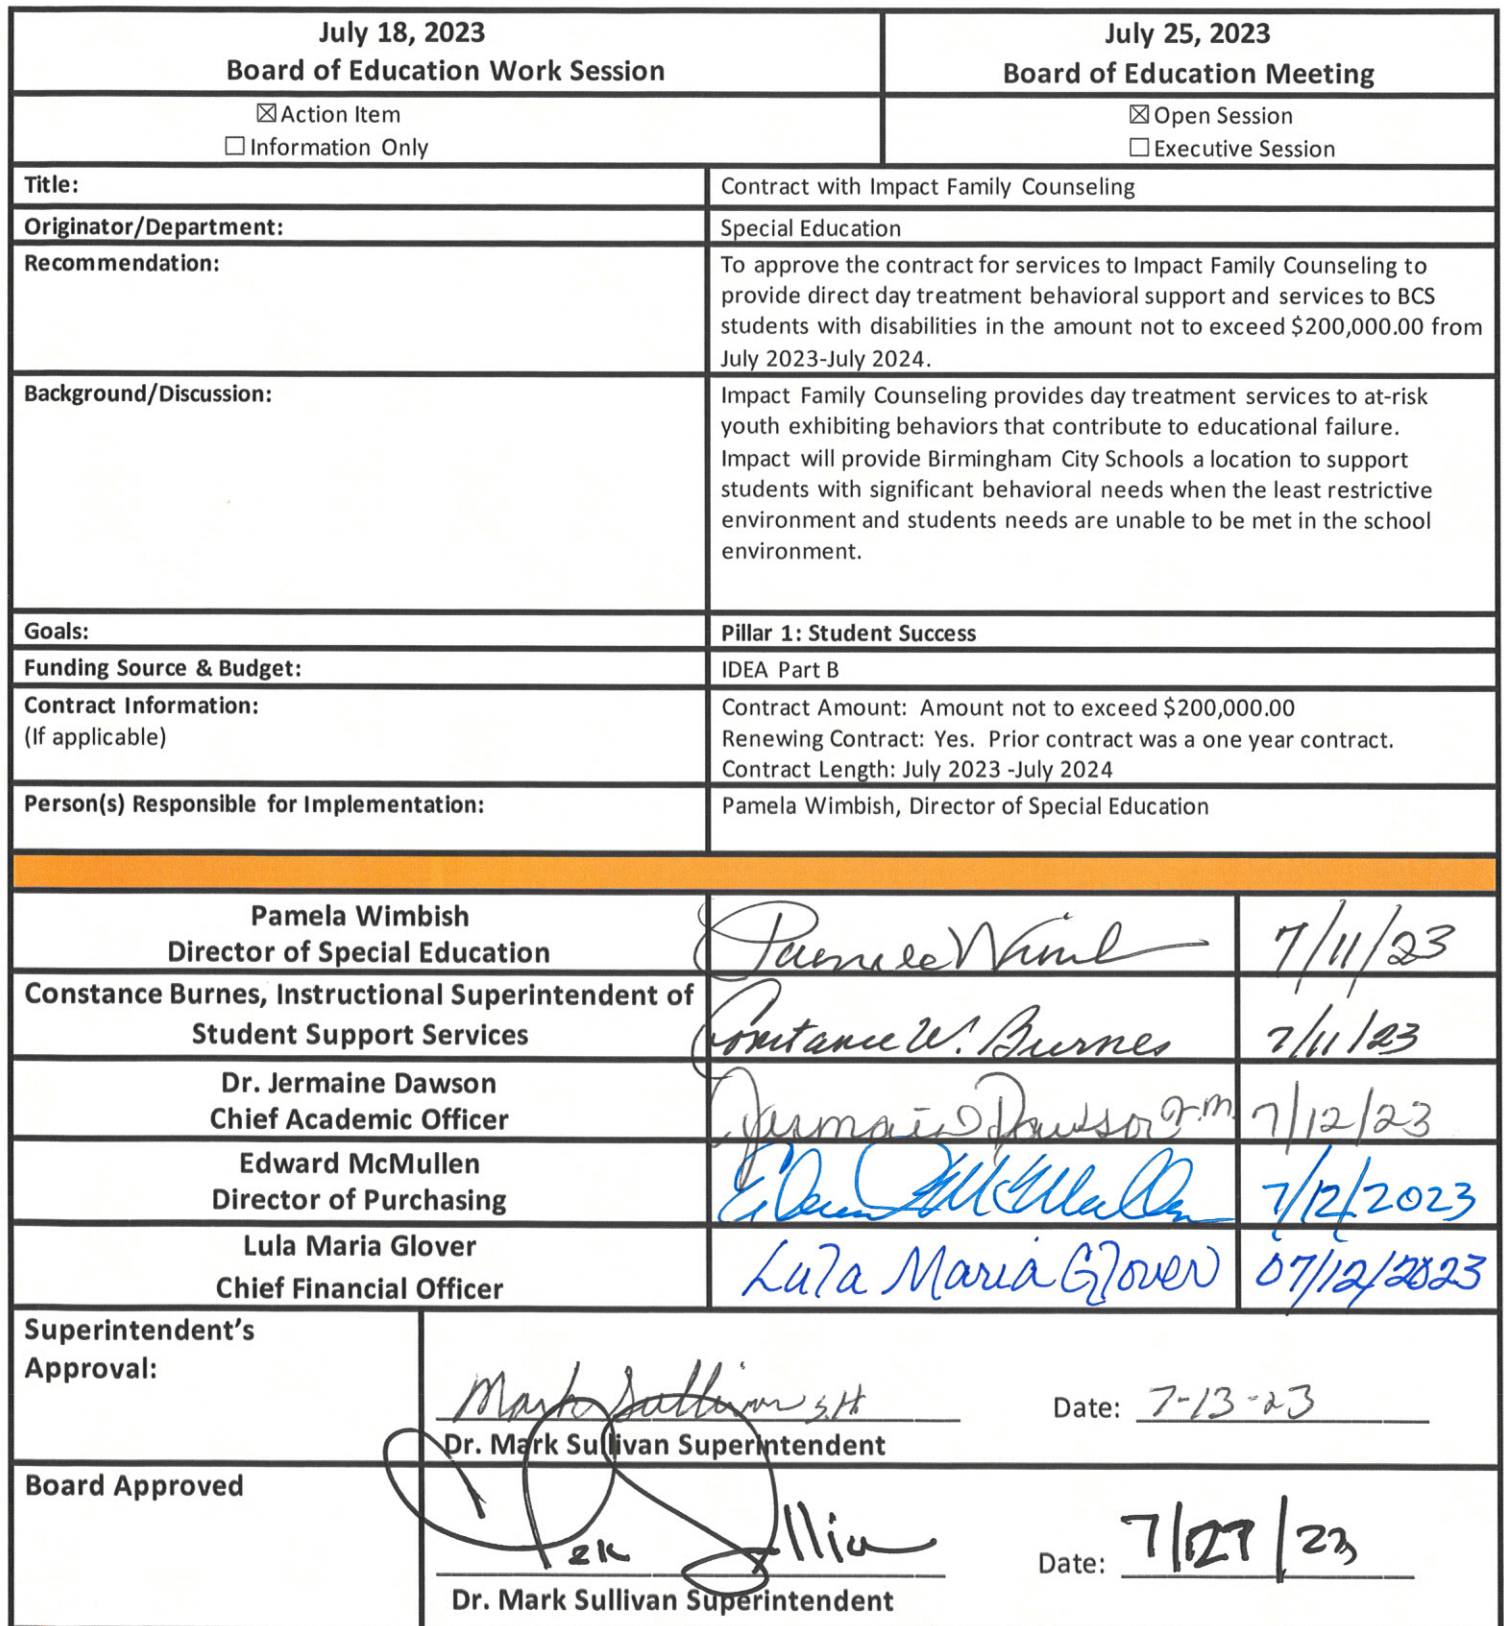 July 18, 2023
Board of Education Work Session
July 25, 2023
Board of Education Meeting
☒ Action Item
☐ Information Only
☒ Open Session
☐ Executive Session
Title:
Contract with Impact Family Counseling
Originator/Department:
Special Education
Recommendation:
To approve the contract for services to Impact Family Counseling to
provide direct day treatment behavioral support and services to BCS
students with disabilities in the amount not to exceed $200,000.00 from
July 2023-July 2024.
Background/Discussion:
Impact Family Counseling provides day treatment services to at-risk
youth exhibiting behaviors that contribute to educational failure.
Impact will provide Birmingham City Schools a location to support
students with significant behavioral needs when the least restrictive
environment and students needs are unable to be met in the school
environment.
Goals:
Pillar 1: Student Success
Funding Source & Budget:
IDEA Part B
Contract Information:
(If applicable)
Contract Amount: Amount not to exceed $200,000.00
Renewing Contract: Yes. Prior contract was a one year contract.
Contract Length: July 2023 -July 2024
Person(s) Responsible for Implementation:
Pamela Wimbish, Director of Special Education
Pamela Wimbish
Director of Special Education
7/11/23
Constance Burnes, Instructional Superintendent of
Student Support Services
Constance W. Burnes
7/11/23
Dr. Jermaine Dawson
Chief Academic Officer
Jermaine Dawson
7/12/23
Edward McMullen
Director of Purchasing
7/12/2023
Lula Maria Glover
Chief Financial Officer
Lula Maria Glover
07/12/2023
Superintendent's
Approval:
Mark Sullivan S.H
Date: 7-13-23
Dr. Mark Sullivan Superintendent
Board Approved
Date: 7/27/23
Dr. Mark Sullivan Superintendent